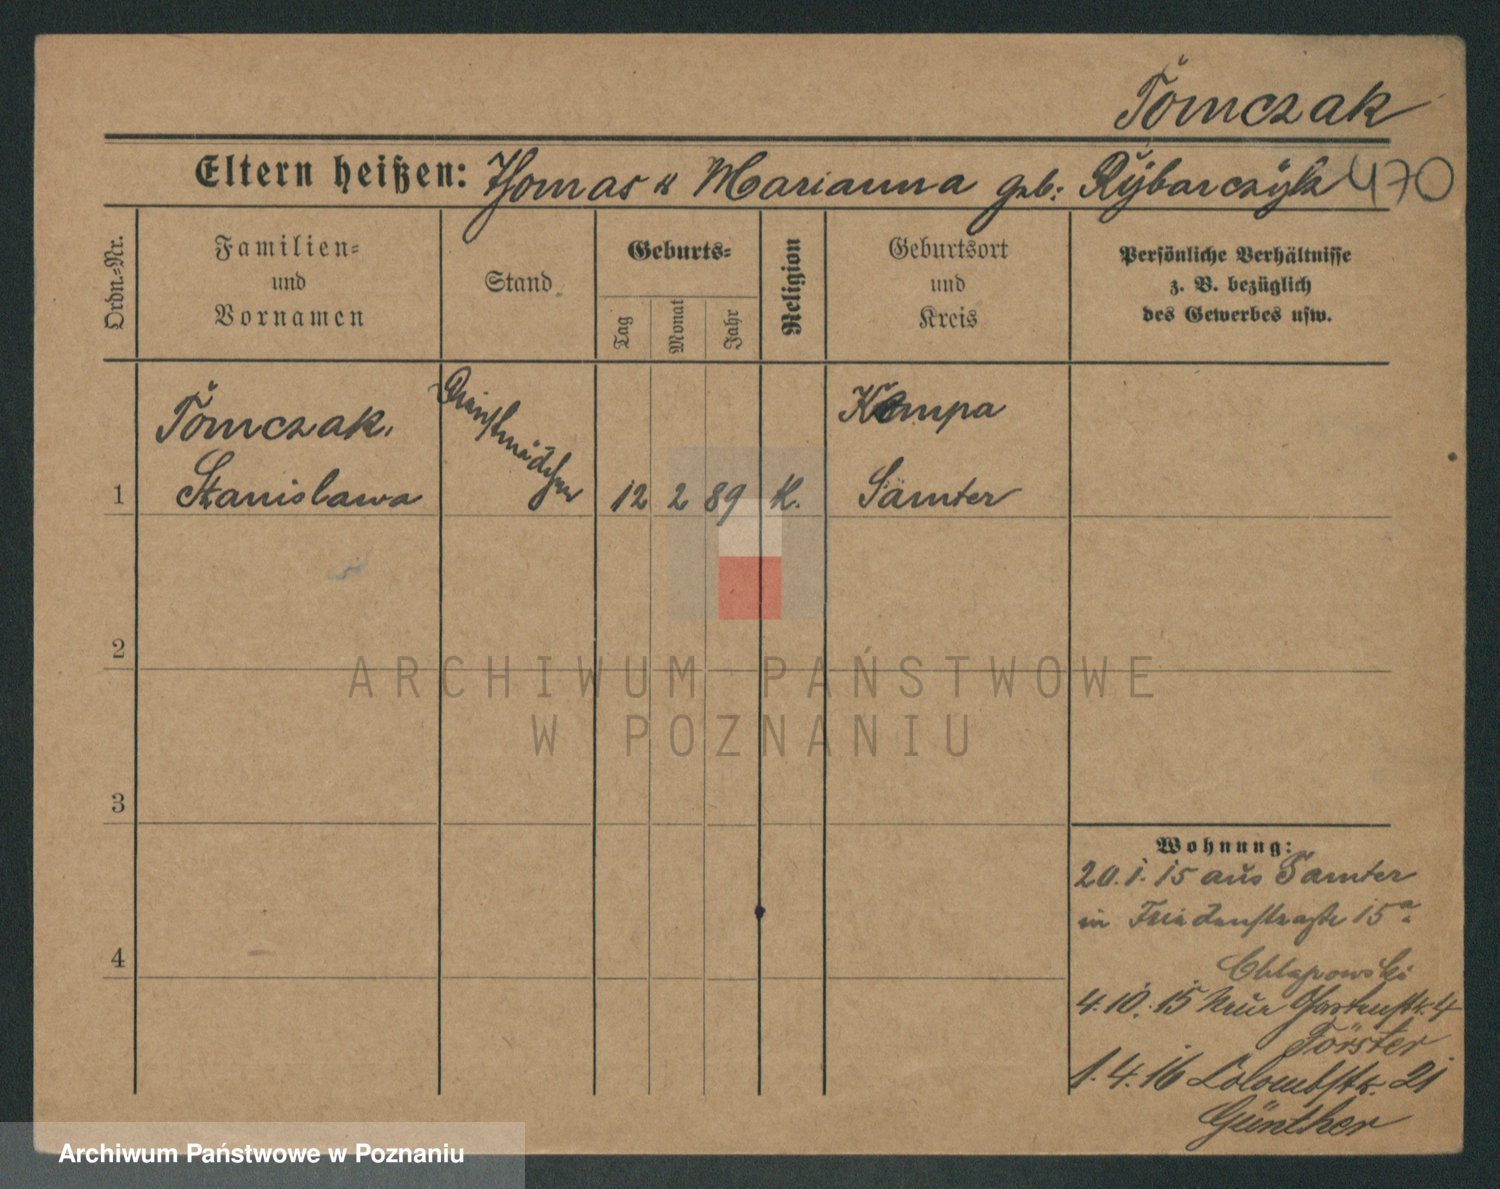 Tomczak
Eltern heißen: Thomas u Marianna geb: Rybarczyk 470
Ordn.-Nr.
Familien-
und
Vornamen
Stand
Geburts-
Tag
Monat
Jahr
Religion
Geburtsort
und
Kreis
Persönliche Verhältnisse
z. B. bezüglich
des Gewerbes usw.
Tomczak, Dienstmädchen Kempa
1 Stanislawa 12 2 89 K. Samter
2
ARCHIWUM PAŃSTWOWE
W POZNANIU
3
Wohnung:
20.1.15 aus Samter
in Friedenstraße 15a.
Chlapowski
4
4.10.15 Neue Gartenstr. 4
Förster
1.4.16 Colombstr. 21
Günther
Archiwum Państwowe w Poznaniu